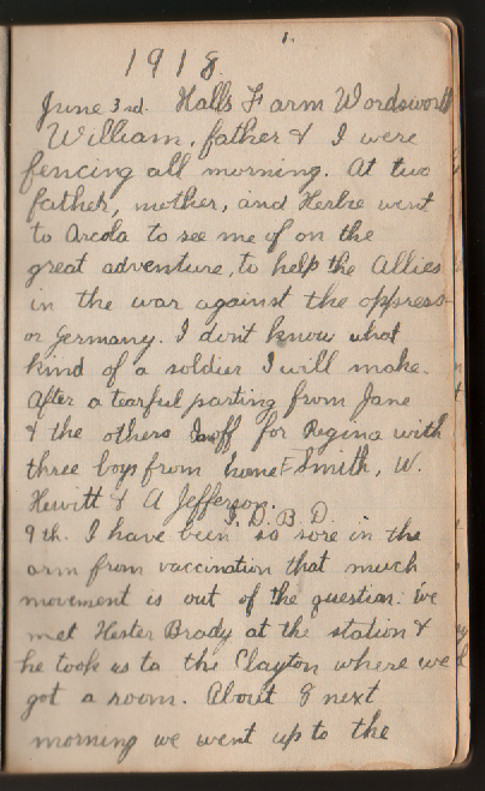 1.
1918.
June 3rd. Halls Farm Wordsworth
William, father & I were
fencing all morning. At two
father, mother, and Herbie went
to Arcola to see me of on the
great adventure, to help the Allies
in the war against the oppress-
or Germany. I don't know what
kind of a soldier I will make.
After a tearful parting from Jane
& the others off for Regina with
three boys from home F Smith, W.
Hewitt & A Jefferson.
D. B. D.
9th. I have been so sore in the
arm from vaccination that much
movement is out of the question. We
met Hester Brady at the station &
he took us to the Clayton where we
got a room. About 8 next
morning we went up to the